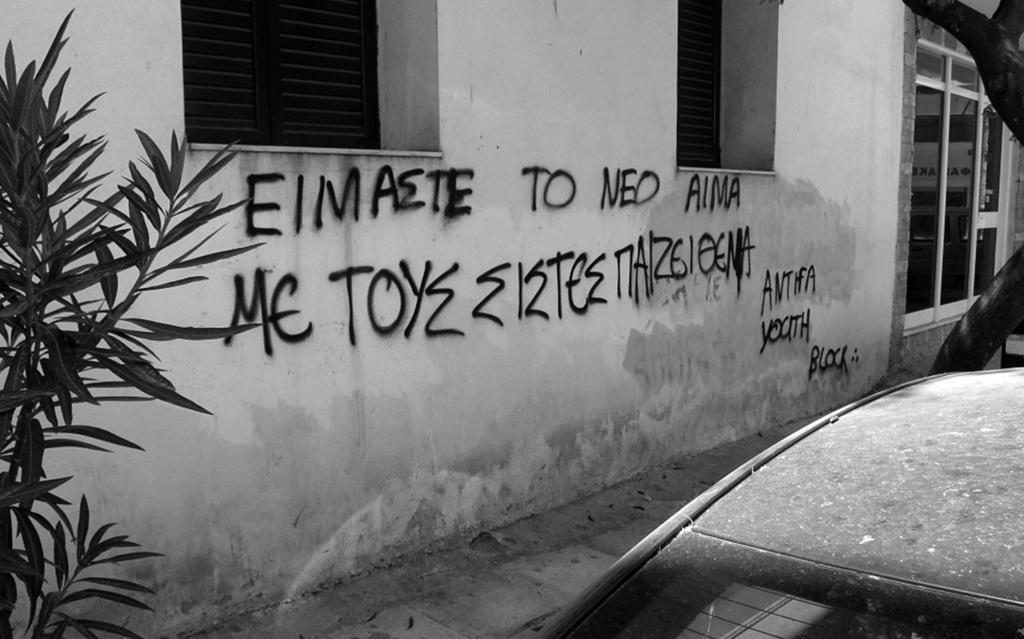 ΕΙΜΑΣΤΕ ΤΟ ΝΕΟ ΑΙΜΑ
ΜΕ ΤΟΥΣ ΣΙΣΤΕΣ ΠΑΙΖΕΙ ΘΕΜΑ
ANTIFA
YOUTH
BLOCK